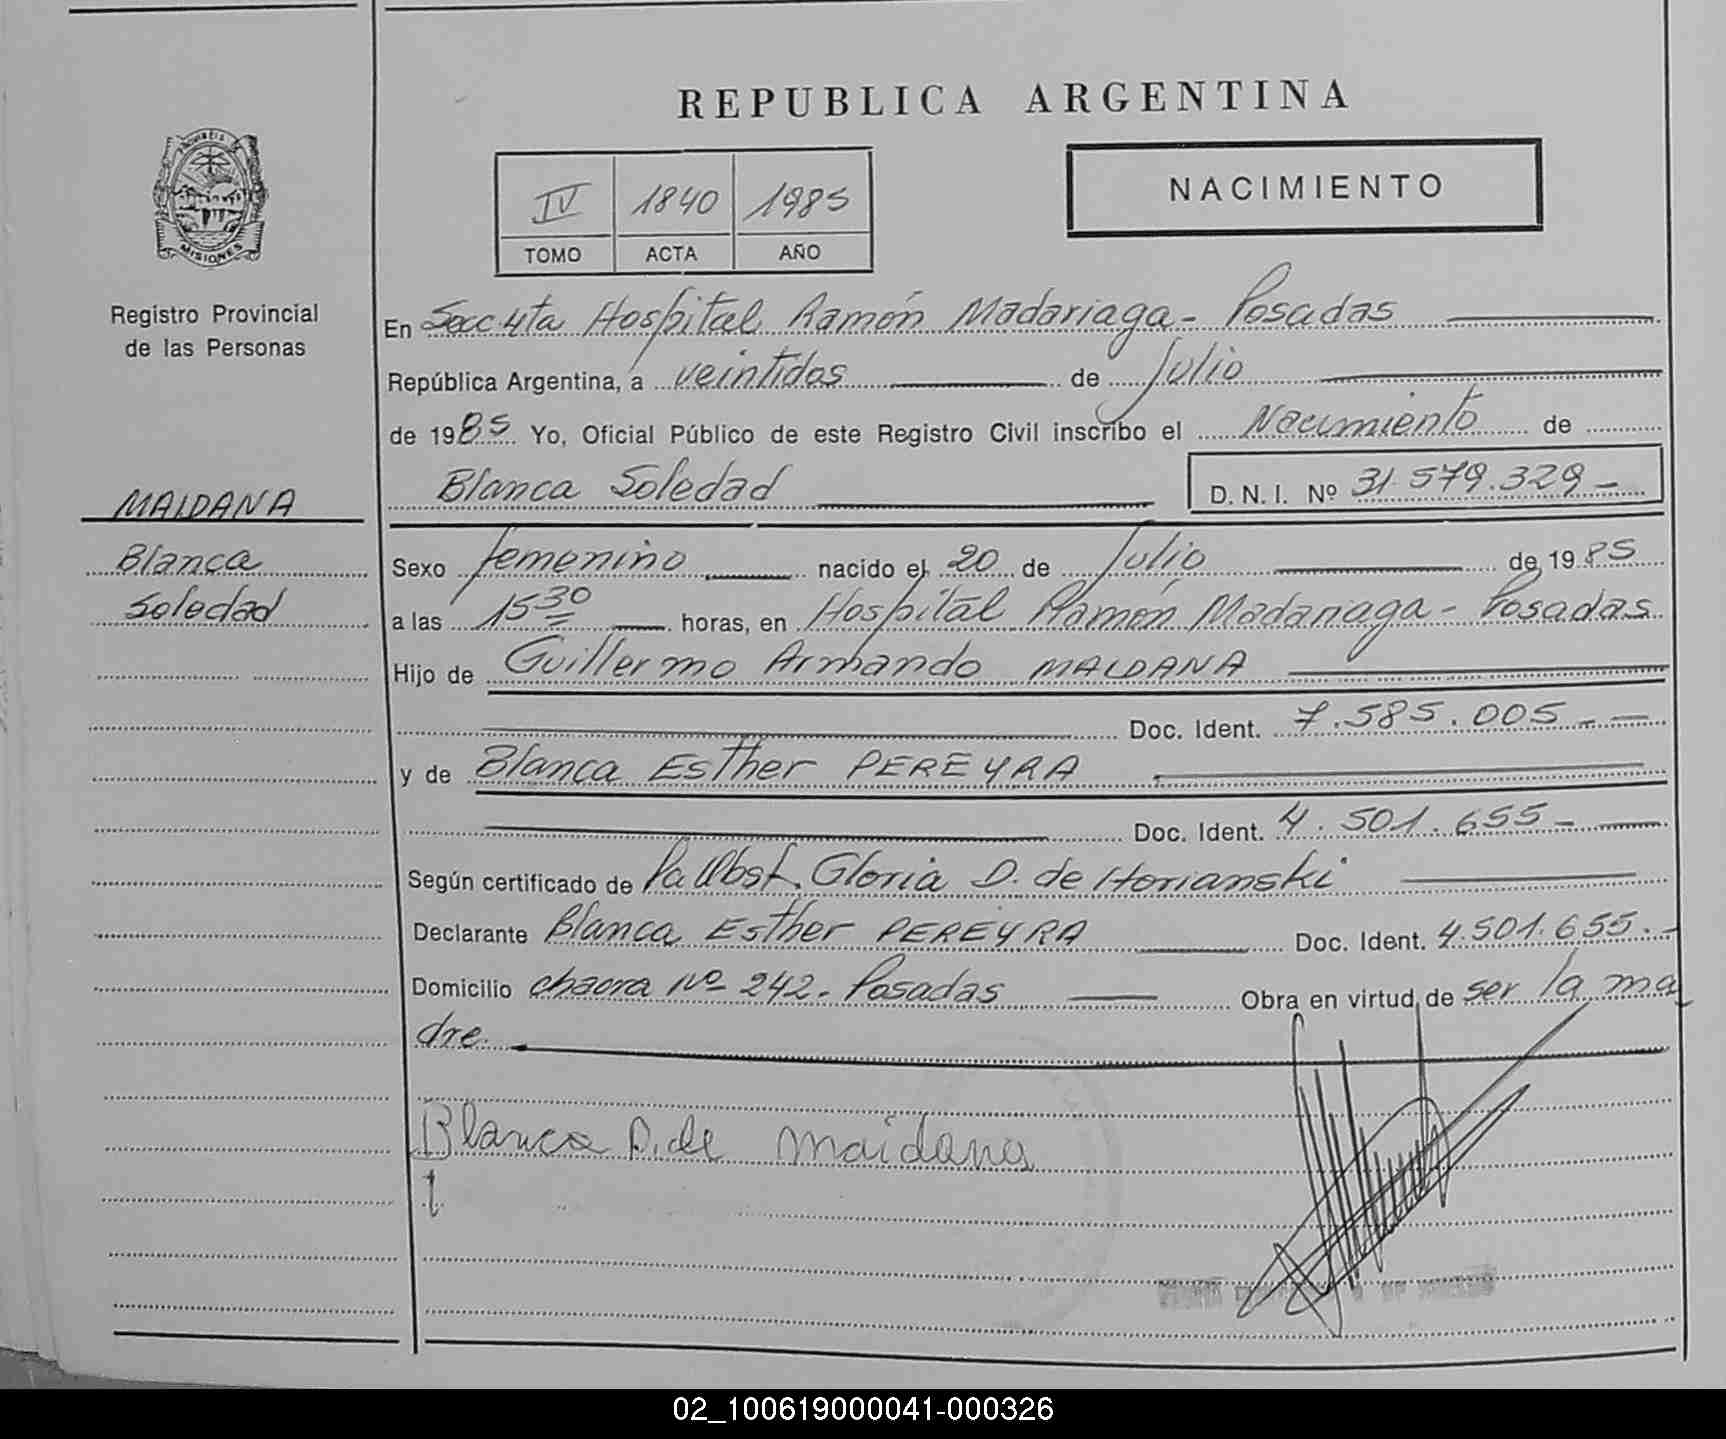 REPUBLICA ARGENTINA
PROVINCIA
MISIONES
Registro Provincial
de las Personas
IV 1840 1985
TOMO ACTA AÑO
NACIMIENTO
En Secc 4ta Hospital Ramón Madariaga - Posadas
República Argentina, a veintidos de Julio
de 1985 Yo, Oficial Público de este Registro Civil inscribo el Nacimiento de
Blanca Soledad D. N. I. Nº 31 579.329 -
MAIDANA
Blanca
Soledad
Sexo femenino nacido el 20 de Julio de 1985
a las 15 30 horas, en Hospital Ramón Madariaga - Posadas
Hijo de Guillermo Armando MAIDANA
Doc. Ident. 7.585.005 -
y de Blanca Esther PEREYRA
Doc. Ident. 4.501.655 -
Según certificado de Pa Obst. Gloria D. de Horianski
Declarante Blanca Esther PEREYRA Doc. Ident. 4.501.655. -
Domicilio chacra Nº 242 - Posadas Obra en virtud de ser la ma
dre.
Blanca P. de Maidana
02_100619000041-000326